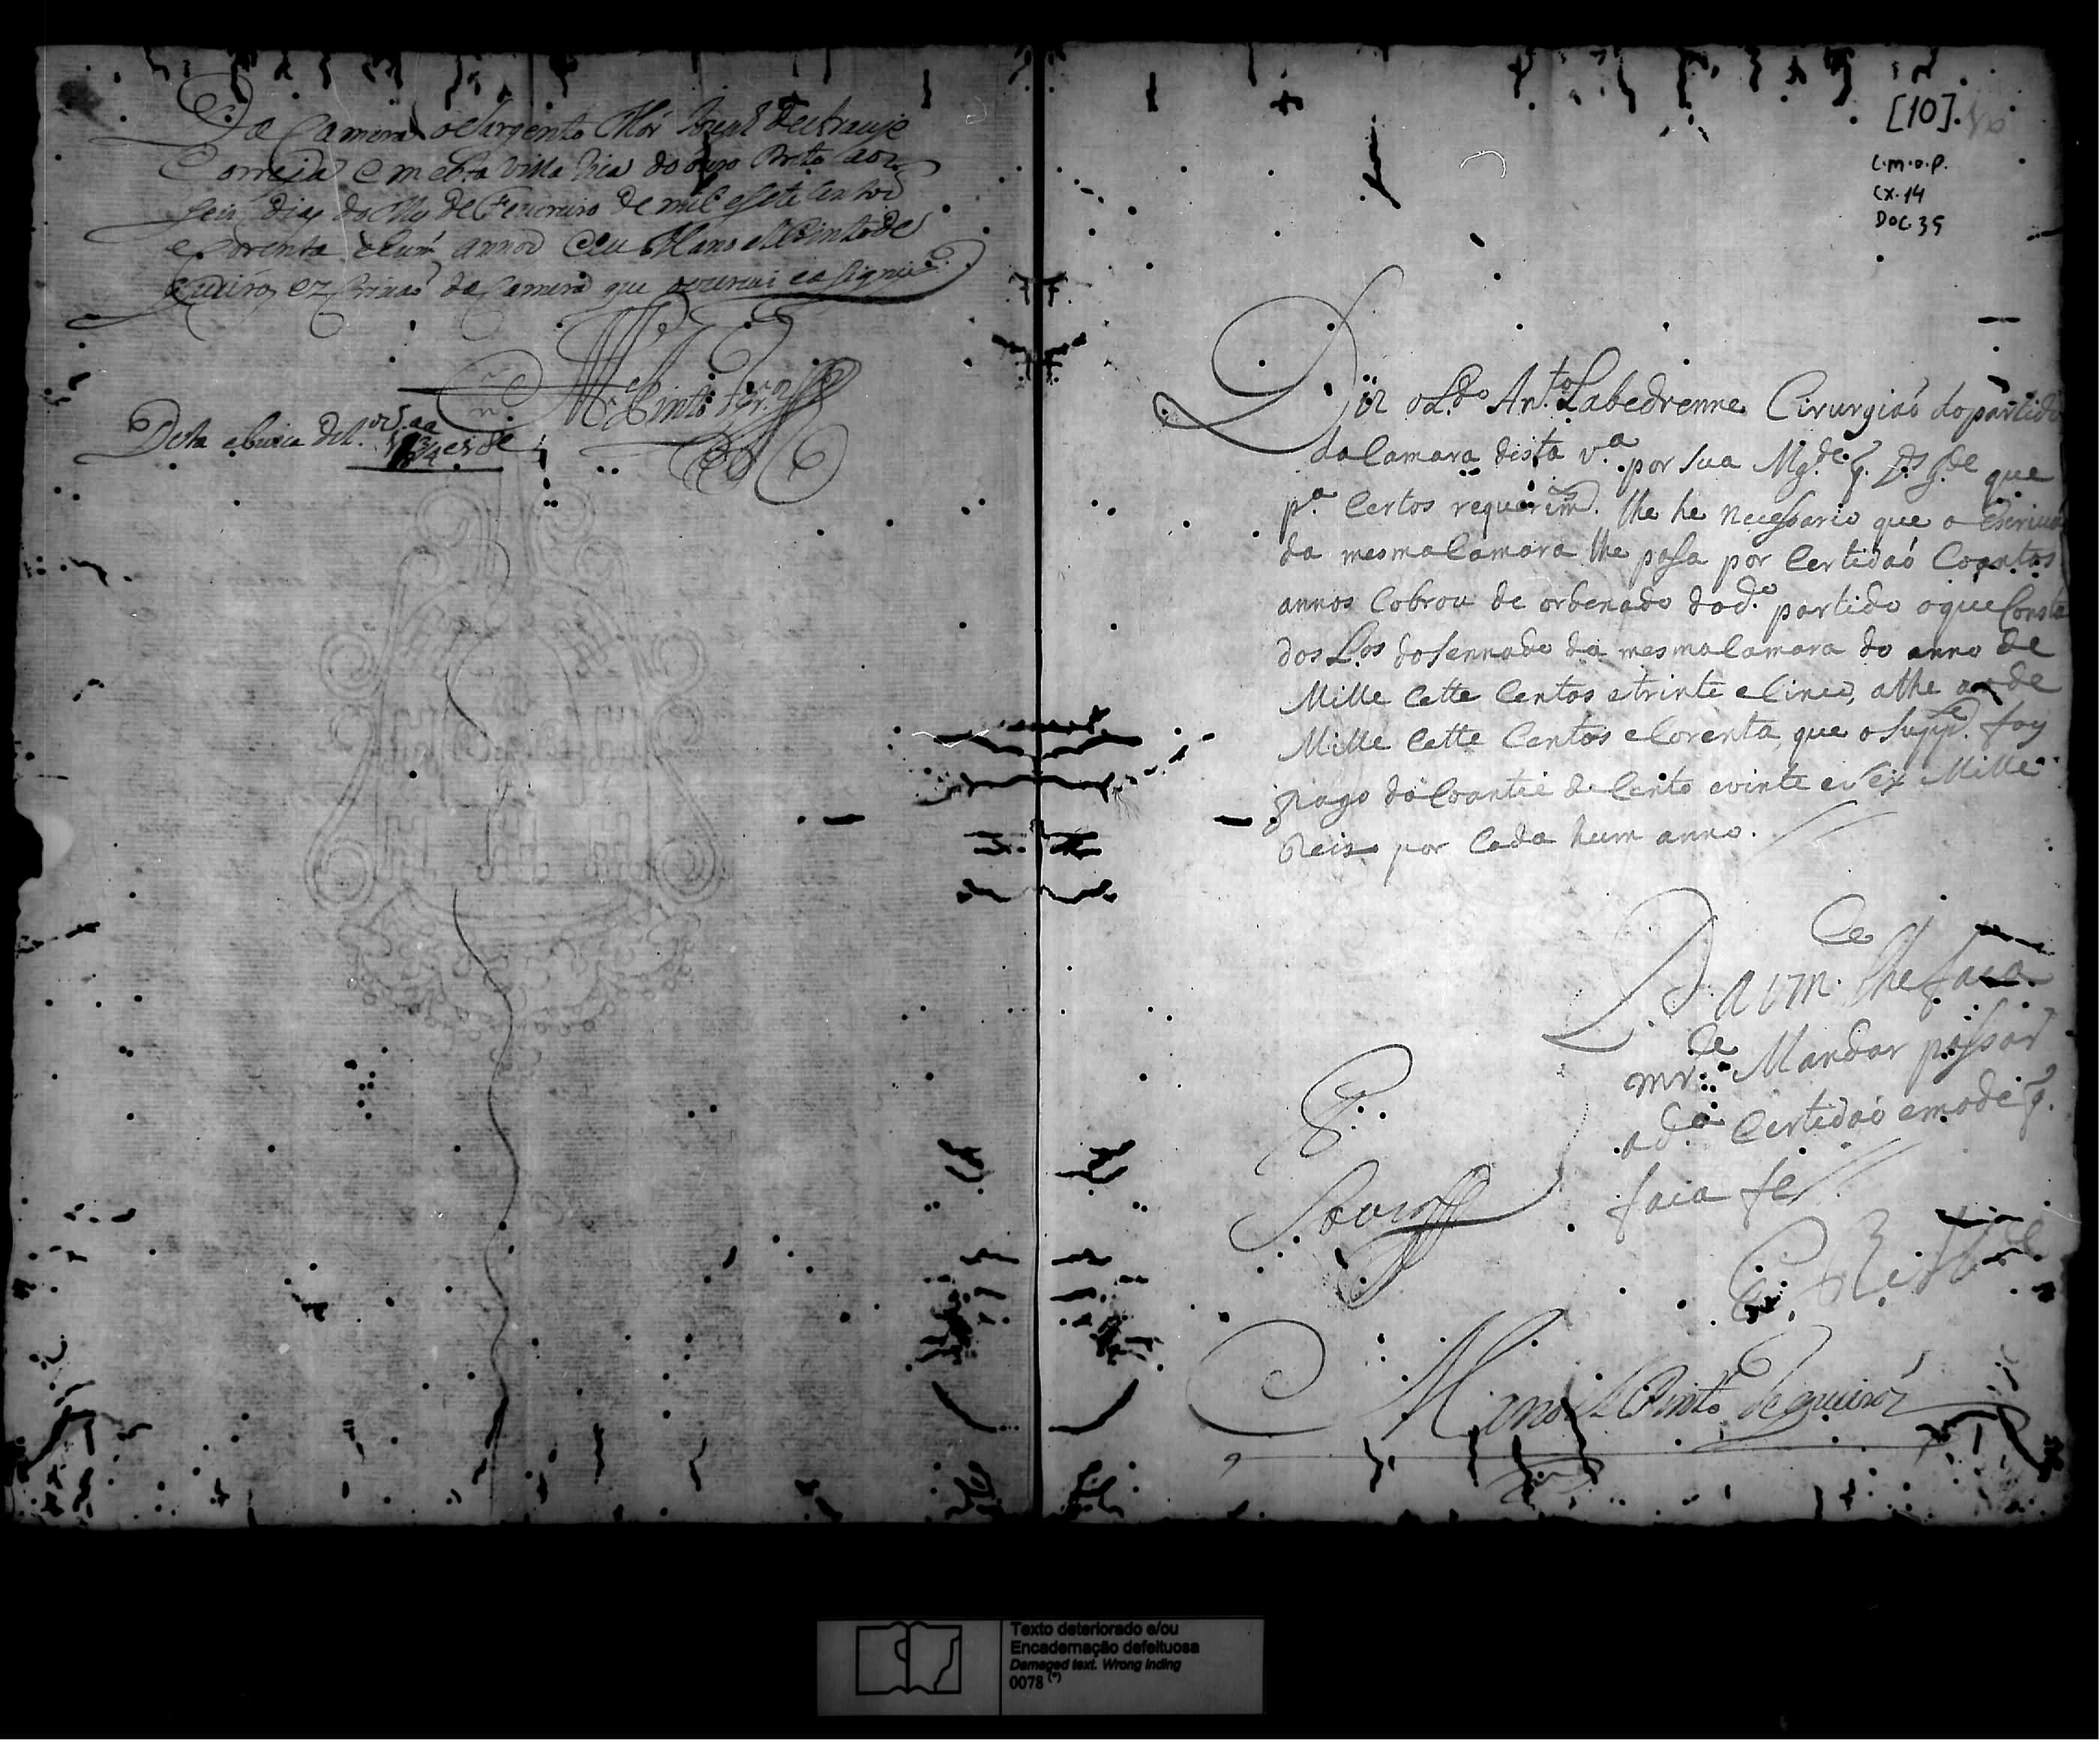 da Camera o Sargento Mór
Correja em esta Villa Rica do ouro Preto aos
seis dias do Mes de Fevereiro de mil e sete centos
e corenta e hum annos e eu Manoel Pinto de
queiros escrivaó da Camera que o escrevi e asignei
M.el Pinto
Desta e busca
[10].
C.M.O.P.
CX.14
DOC.35
Diz o L.do Ant.to Labedrenne Cirurgiaó do partido
da Camara desta v.a por sua Mg.de q. D.s g.de que
p.a Certos requerim. lhe he necessario que o escrivaó
da mesma Camara lhe pasa por Certidaó Coantos
annos Cobrou de ordenado do d.o partido o que Consta
dos L.os do sennado da mesma Camara do anno de
Mille Cette Centos e trinta e Cinco, athe o de
Mille Cette Centos e Corenta, que o supp.e foy
pago da Coantia de Cento e vinte e seix Mille
Reis por Cada hum anno.
P. a vm.ce lhe faca
m.ce Mandar passar
a d.a Certidaó em o de q.
faca fe
E. R. M.ce
Manoel Pinto de queiros
Texto deteriorado e/ou
Encadernação defeituosa
Damaged text. Wrong inding
0078 (*)